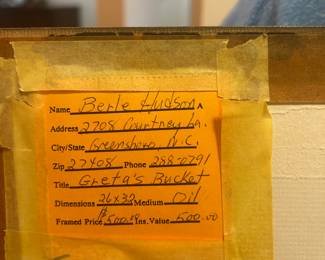 Name Berle Hudson A
Address 2708 Courtney La.
City/State Greensboro, N.C.
Zip 27408 Phone 288-0791
Title Greta's Bucket
Dimensions 26x32 Medium Oil
Framed Price $500.00 Ins. Value 500.00